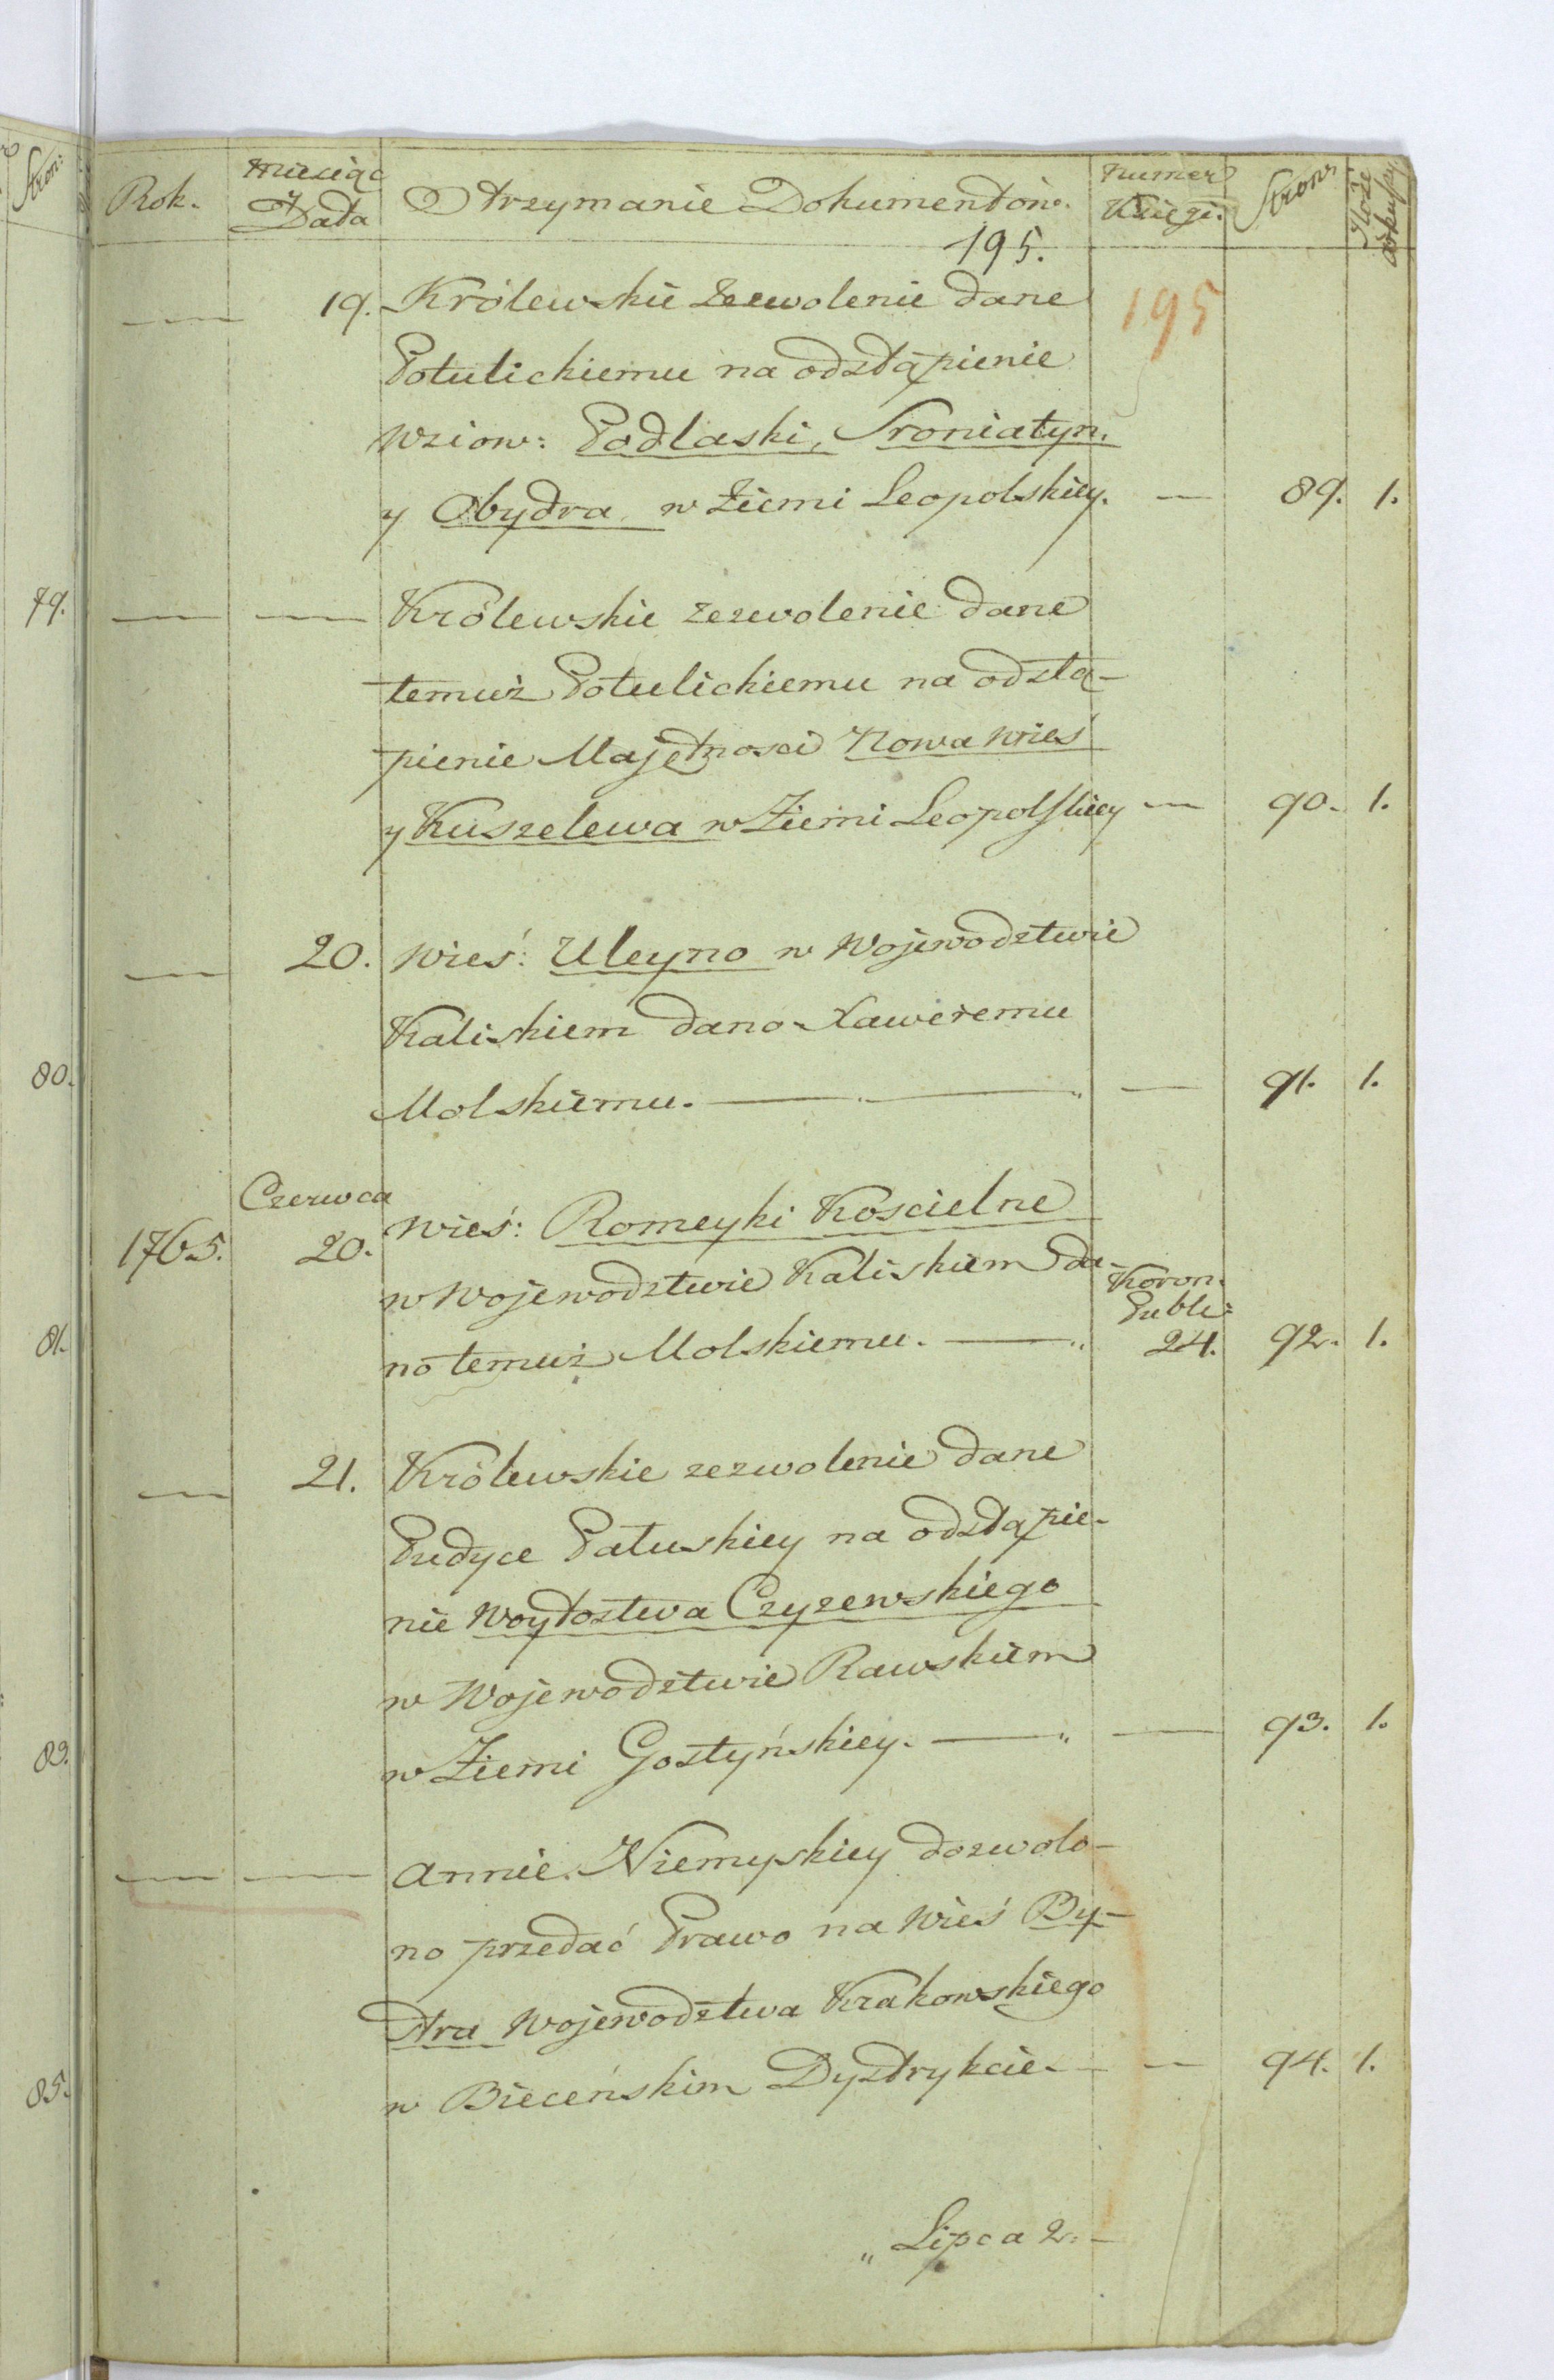 Stron:
Rok. Miesiąc y Data Otrzymanie Dokumentów. Numer Księgi. Stron
195.
19. Królewskie Zezwolenie dane 195
Potulickiemu na odstąpienie
wziow: Podlaski, Sroniatyn,
y Obydra w Ziemi Leopolskiey. — 89. 1.
79. — — Królewskie zezwolenie dane
temuż Potulickiemu na odstą-
pienie Majętnosci Nowa wieś
y Kuszelewa w Ziemi Leopolskiey — 90. 1.
— 20. Wieś: Uleyno w Wojewodztwie
Kaliskiem dano Xaweremu
80. Molskiemu. — — 91. 1.
Czerwca
1765. 20. Wieś: Romeyki Koscielne
w Wojewodztwie Kaliskiem da- Koron.
Publi:
81. no temuż Molskiemu. — 24. 92. 1.
— 21. Królewskie zezwolenie dane
Pudyce Patuskiey na odstąpie-
nie Woytostwa Czyzewskiego
w Wojewodztwie Rawskiem
83. w Ziemi Gostyńskiey. — — 93. 1.
— — Annie Niemyskiey dozwolo-
no przedać Prawo na Wieś By-
stra Wojewodztwa Krakowskiego
85. w Bieceńskim Dystrykcie — — 94. 1.
„ Lipca 2. —